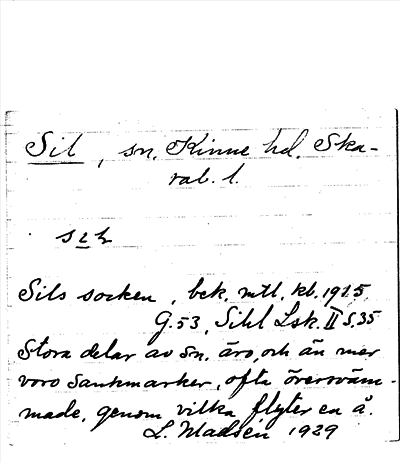 Sil, sn. Kinne hd. Ska-
rab. l.
Sils socken, bek. mtl. kb. 1915,
G. 53, Sihl Lsk. II S. 35
Stora delar av sn. äro, och än mer
voro sankmarker, ofta översväm-
made, genom vilka flyter en å.
L. Madsén 1929